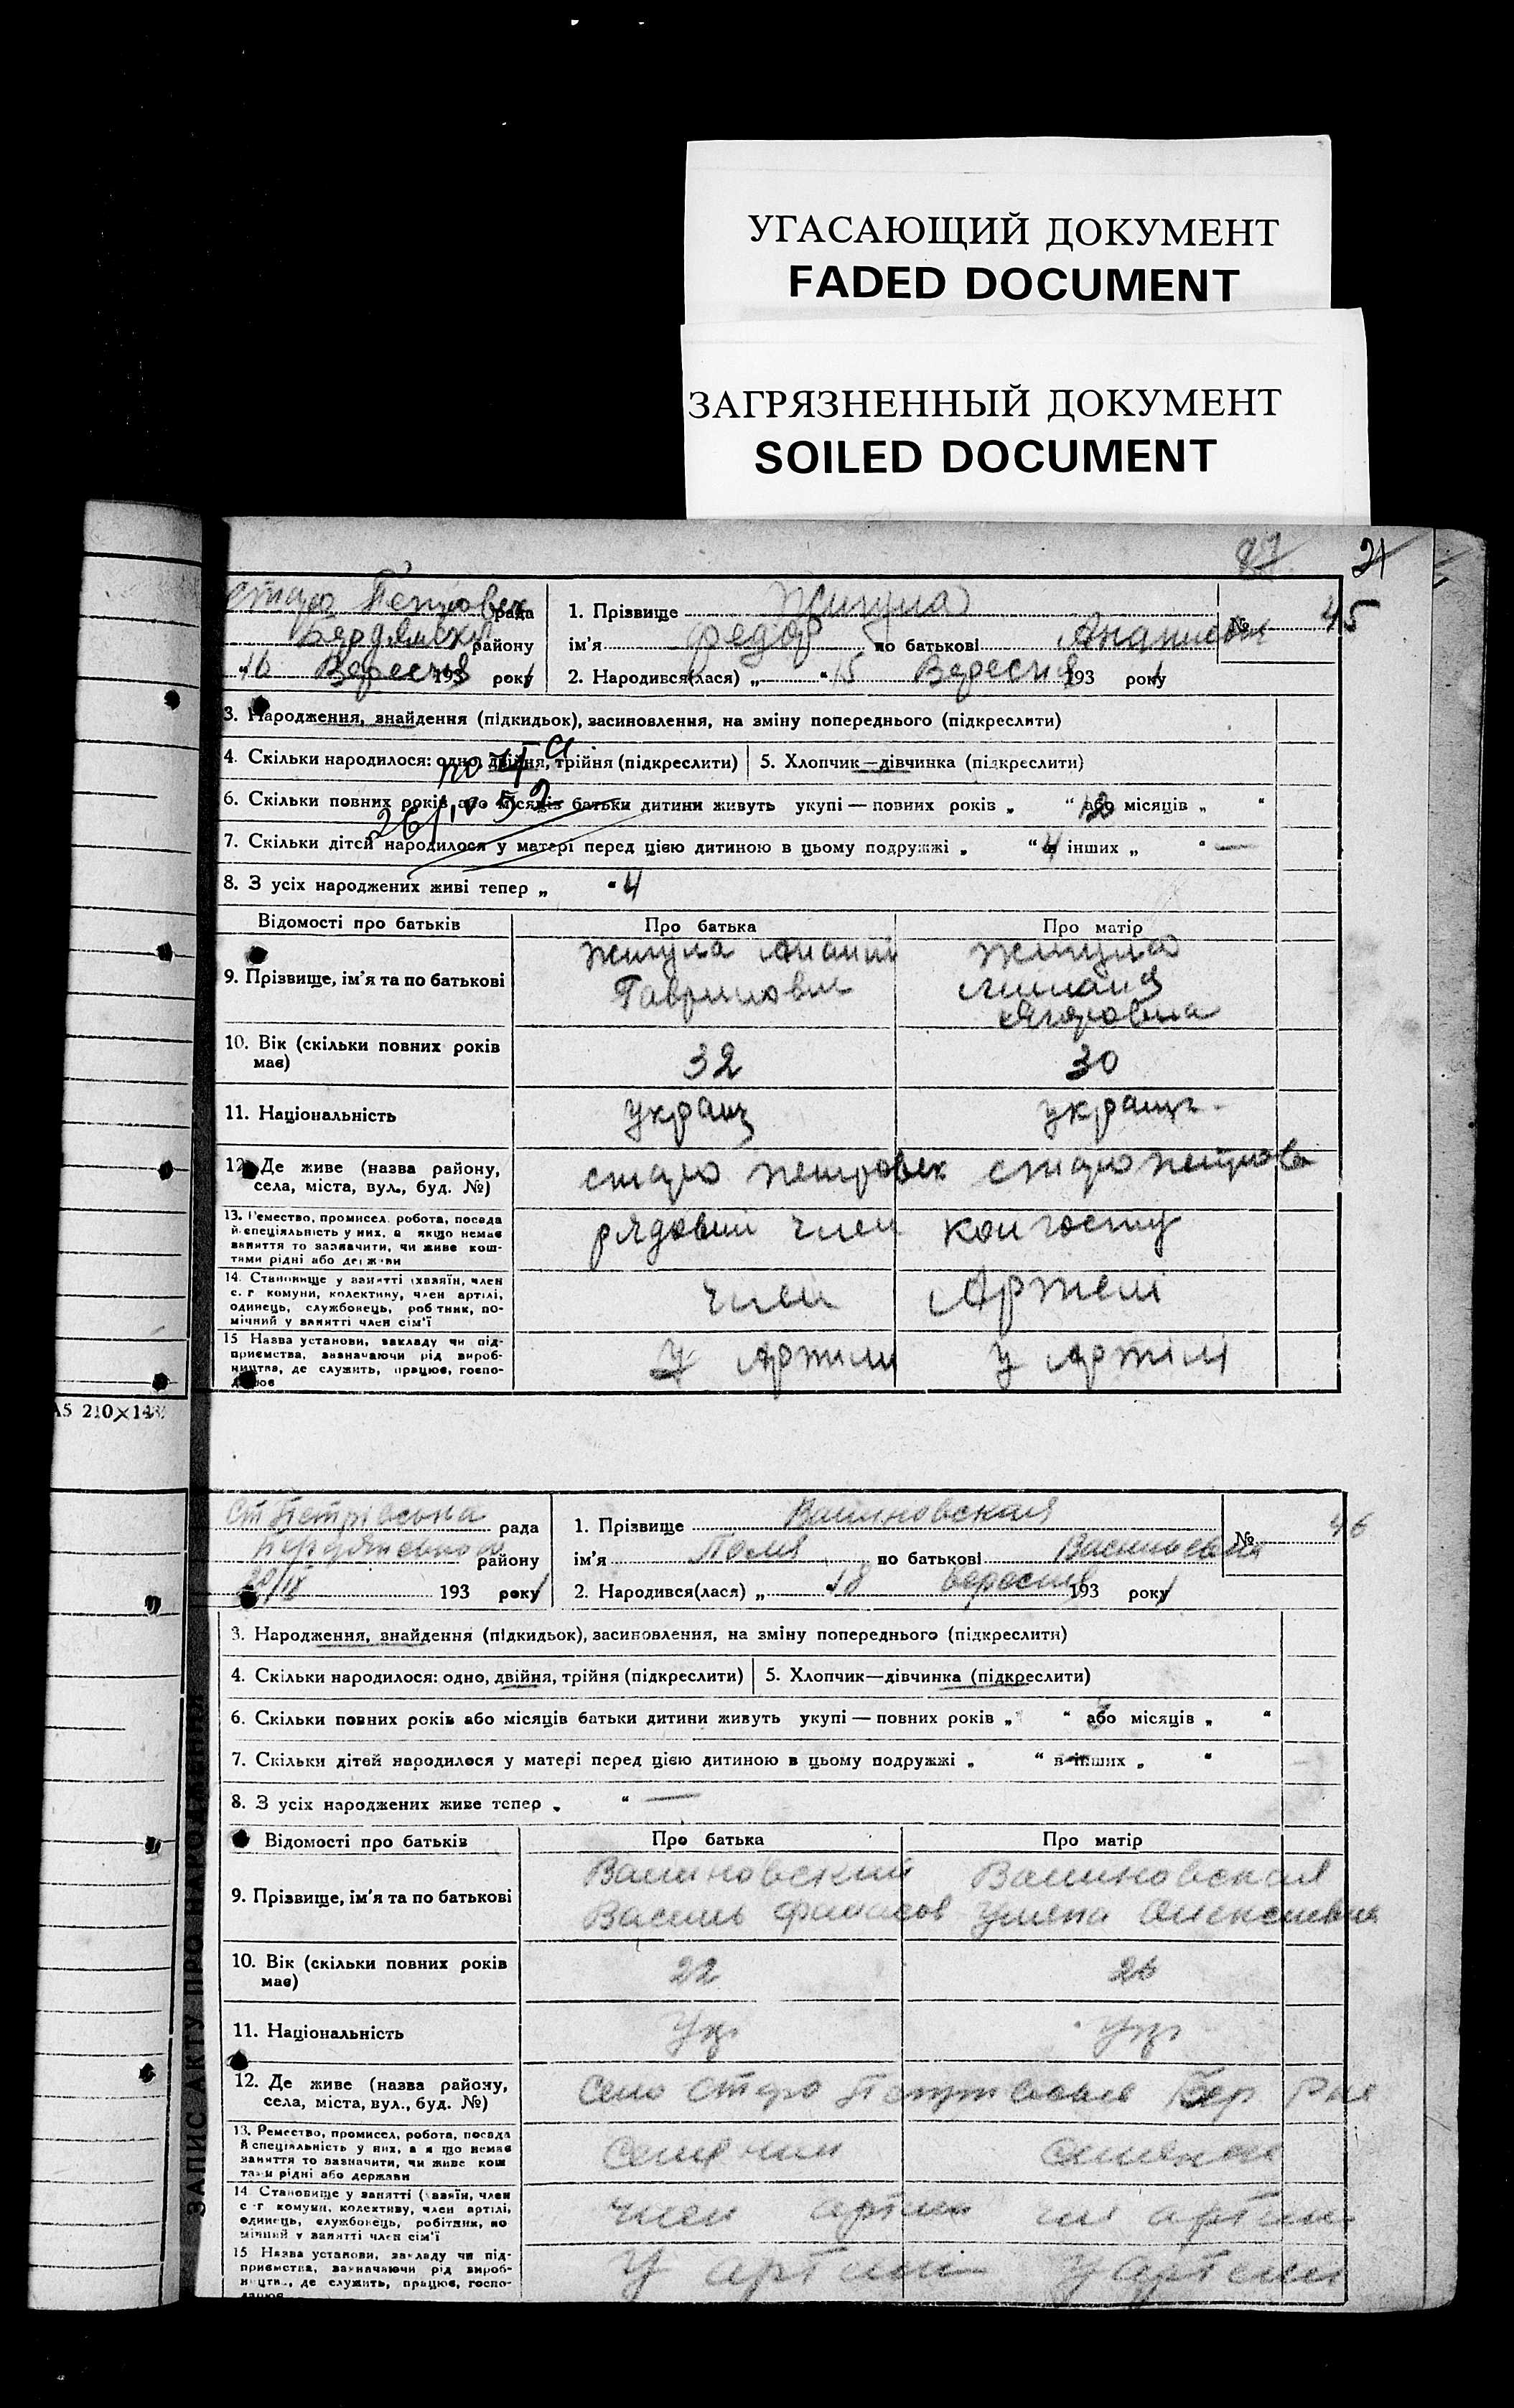 УГАСАЮЩИЙ ДОКУМЕНТ
FADED DOCUMENT
ЗАГРЯЗНЕННЫЙ ДОКУМЕНТ
SOILED DOCUMENT
21
Старо Петровск рада
Бердянску району
16 Вересня 1931 року
1. Прізвище Жигула
ім'я Федор по батькові
№ 45
2. Народився(лася) „ “ 15 Вересня 1931 року
3. Народження, знайдення (підкидьок), засиновлення, на зміну попереднього (підкреслити)
4. Скільки народилося: одно, двійня, трійня (підкреслити) 5. Хлопчик—дівчинка (підкреслити)
6. Скільки повних років або місяців батьки дитини живуть укупі — повних років „ 12 “ або місяців „ “
7. Скільки дітей народилося у матері перед цією дитиною в цьому подружжі „ 4 “ в інших „ “ —
8. З усіх народжених живі тепер „ “ 4
Відомості про батьків Про батька Про матір
9. Прізвище, ім'я та по батькові
Жигула Ананій Гаврилович
Жигула
10. Вік (скільки повних років має) 32 30
11. Національність украи украин.
12. Де живе (назва району, села, міста, вул., буд. №) старо петровск старо петрово
13. Ремество, промисел, робота, посада й спеціяльність у них, а якщо немає заняття то зазначити, чи живе коштами рідні або держави
рядовий член
14. Становище у занятті (хазяїн, член с.-г. комуни, колективу, член артілі, одинець, службовець, робітник, помічний у занятті член сім'ї
член Артели
15 Назва установи, закладу чи підприємства, зазначаючи рід виробництва, де служить, працює, господарює
У Артили у Артілі
А5 210×148
Ст Петрівська рада
району
20/IX 1931 року
1. Прізвище
ім'я Поля по батькові Васильевна
№ 46
2. Народився(лася) „ “ 18 вересня 1931 року
3. Народження, знайдення (підкидьок), засиновлення, на зміну попереднього (підкреслити)
4. Скільки народилося: одно, двійня, трійня (підкреслити) 5. Хлопчик—дівчинка (підкреслити)
6. Скільки повних років або місяців батьки дитини живуть укупі — повних років „ 3 “ або місяців „ “
7. Скільки дітей народилося у матері перед цією дитиною в цьому подружжі „ “ в інших „ “
8. З усіх народжених живе тепер „ “ —
Відомості про батьків Про батька Про матір
9. Прізвище, ім'я та по батькові
Василь
Уляна Олексеевна
10. Вік (скільки повних років має) 22 26
11. Національність Укр Укр
12. Де живе (назва району, села, міста, вул., буд. №) Село Старо Бер
13. Ремество, промисел, робота, посада й спеціяльність у них, а якщо немає заняття то зазначити, чи живе коштами рідні або держави
14 Становище у занятті (хазяїн, член с.-г. комуни, колективу, член артілі, одинець, службовець, робітник, помічний у занятті член сім'ї
член артели чл артили
15 Назва установи, закладу чи підприємства, зазначаючи рід виробництв., де служить, працює, господарює
У артили У артели
ЗАПИС АКТУ ПРО НАРОДЖЕННЯ